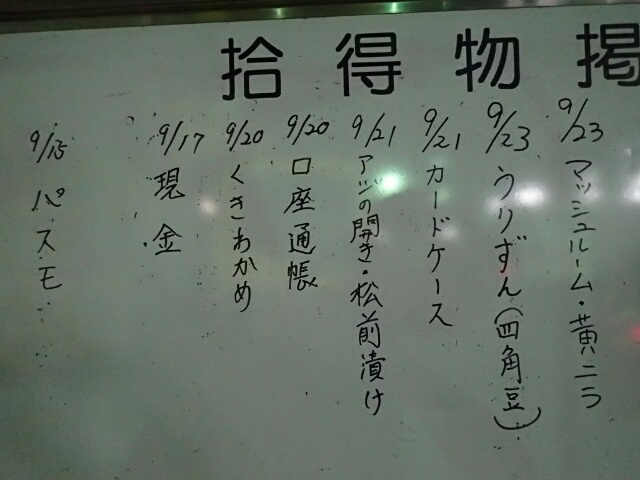 拾得物掲
9/23 マッシュルーム・黄ニラ
9/23 うりずん(四角豆)
9/21 カードケース
9/21 アジの開き・松前漬け
9/20 口座通帳
9/20 くきわかめ
9/17 現金
9/15 パスモ